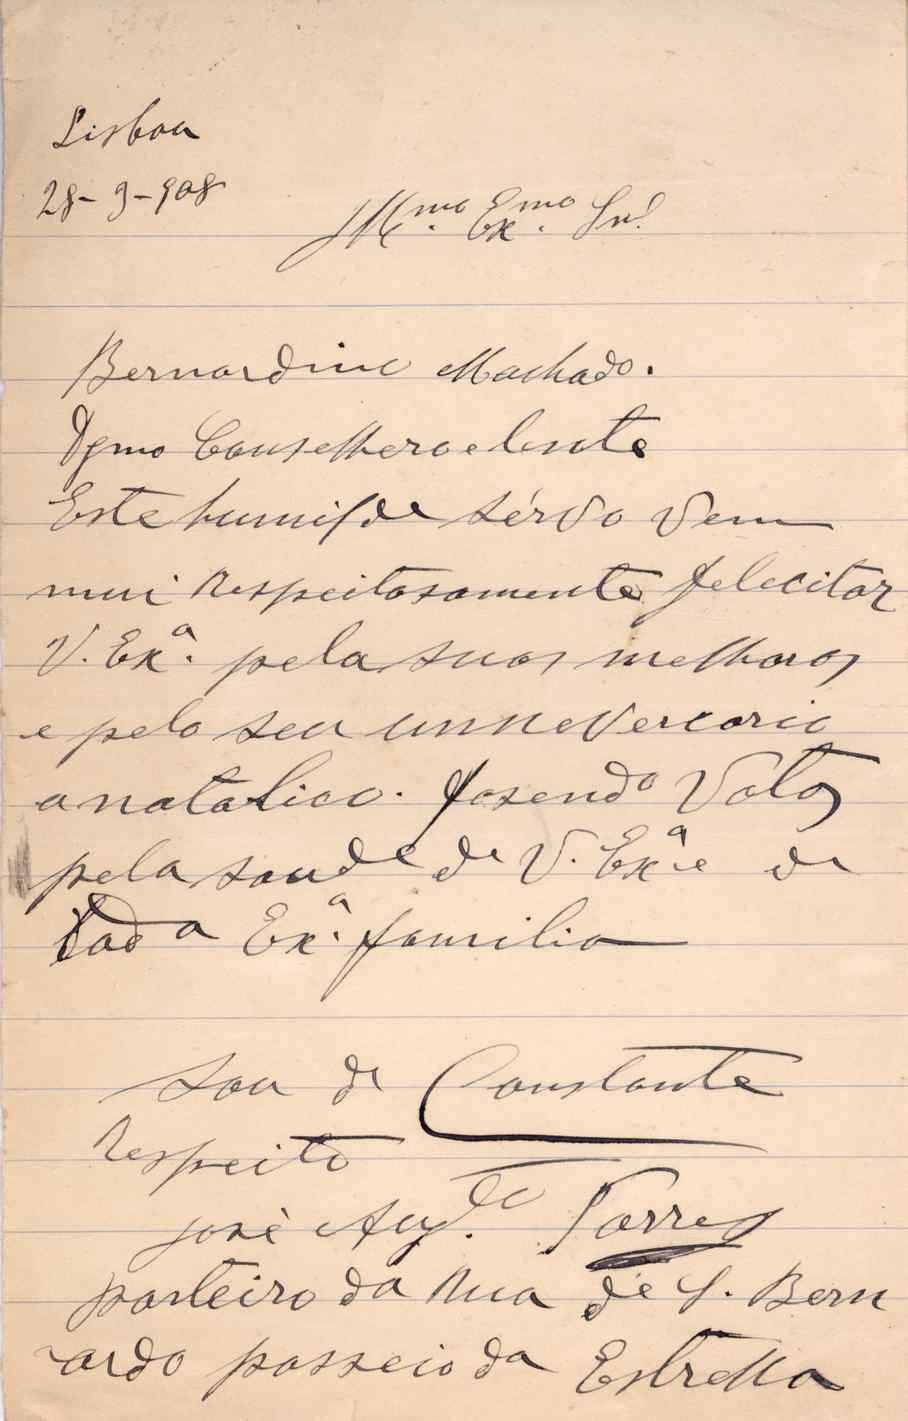 Lisboa
28-9-908
Illmo. Exmo. Snr.
Bernardino Machado.
Dgmo Conselhero e lente
Este humilde sérvo vem
mui respeitosamente felecitar
V. Exª. pela suas melharas
e pelo seu annevercario
anatalico. fasendo votos
pela saude de V. Exª e de
toda Exª. familia
Sou de Constante
Respeito
josè Augto. Torres
porteiro da Rua de S. Bern
ardo passeio da Estrella